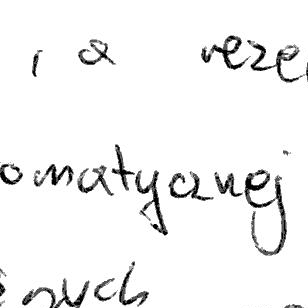 , a reze
omatycznej
zych